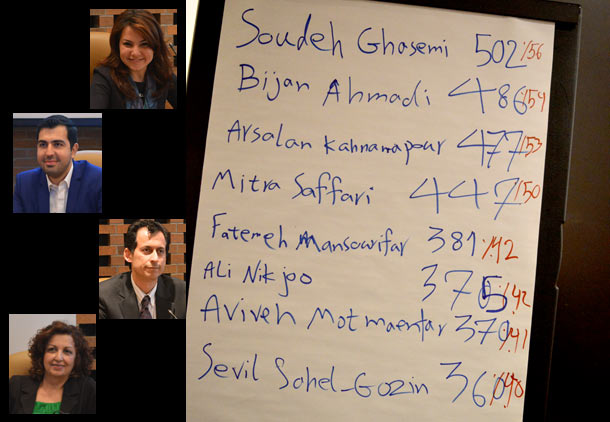 Soudeh Ghasemi 502 %56
Bijan Ahmadi 486 %54
Arsalan Kahnamapour 477 %53
Mitra Saffari 447 %50
Fatemeh Mansourifar 381 %42
Ali Nikjoo 375 %42
Avireh Motmaenfar 370 %41
Sevil Sohel-Gozin 360 %40